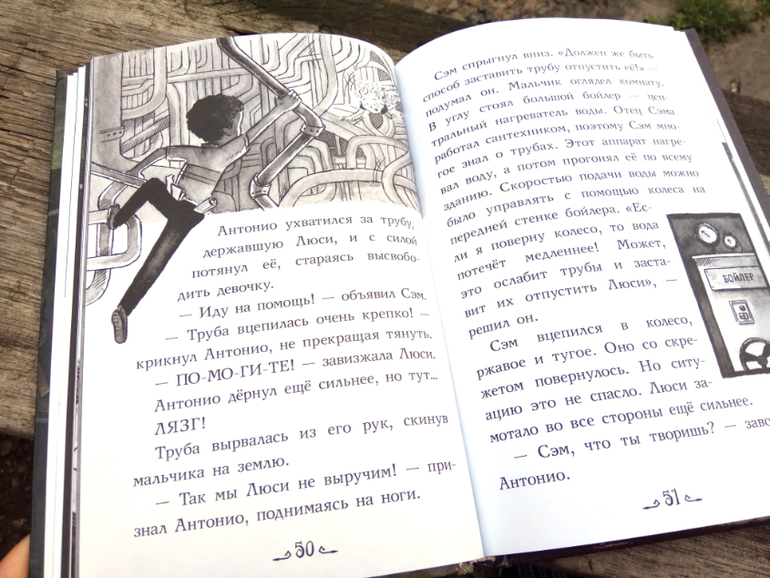 Антонио ухватился за трубу,
державшую Люси, и с силой
потянул её, стараясь высвобо-
дить девочку.
— Иду на помощь! — объявил Сэм.
— Труба вцепилась очень крепко! —
крикнул Антонио, не прекращая тянуть.
— ПО-МО-ГИ-ТЕ! — завизжала Люси.
Антонио дёрнул ещё сильнее, но тут...
ЛЯЗГ!
Труба вырвалась из его рук, скинув
мальчика на землю.
— Так мы Люси не выручим! — при-
знал Антонио, поднимаясь на ноги.
50
Сэм спрыгнул вниз. «Должен же быть
способ заставить трубу отпустить её!» —
подумал он. Мальчик оглядел комнату.
В углу стоял большой бойлер — цен-
тральный нагреватель воды. Отец Сэма
работал сантехником, поэтому Сэм мно-
гое знал о трубах. Этот аппарат нагре-
вал воду, а потом прогонял её по всему
зданию. Скоростью подачи воды можно
было управлять с помощью колеса на
передней стенке бойлера. «Ес-
ли я поверну колесо, то вода
потечёт медленнее! Может,
это ослабит трубы и заста-
вит их отпустить Люси», —
решил он.
БОЙЛЕР
Сэм вцепился в колесо,
ржавое и тугое. Оно со скре-
жетом повернулось. Но ситу-
ацию это не спасло. Люси за-
мотало во все стороны ещё сильнее.
— Сэм, что ты творишь? —
Антонио.
51